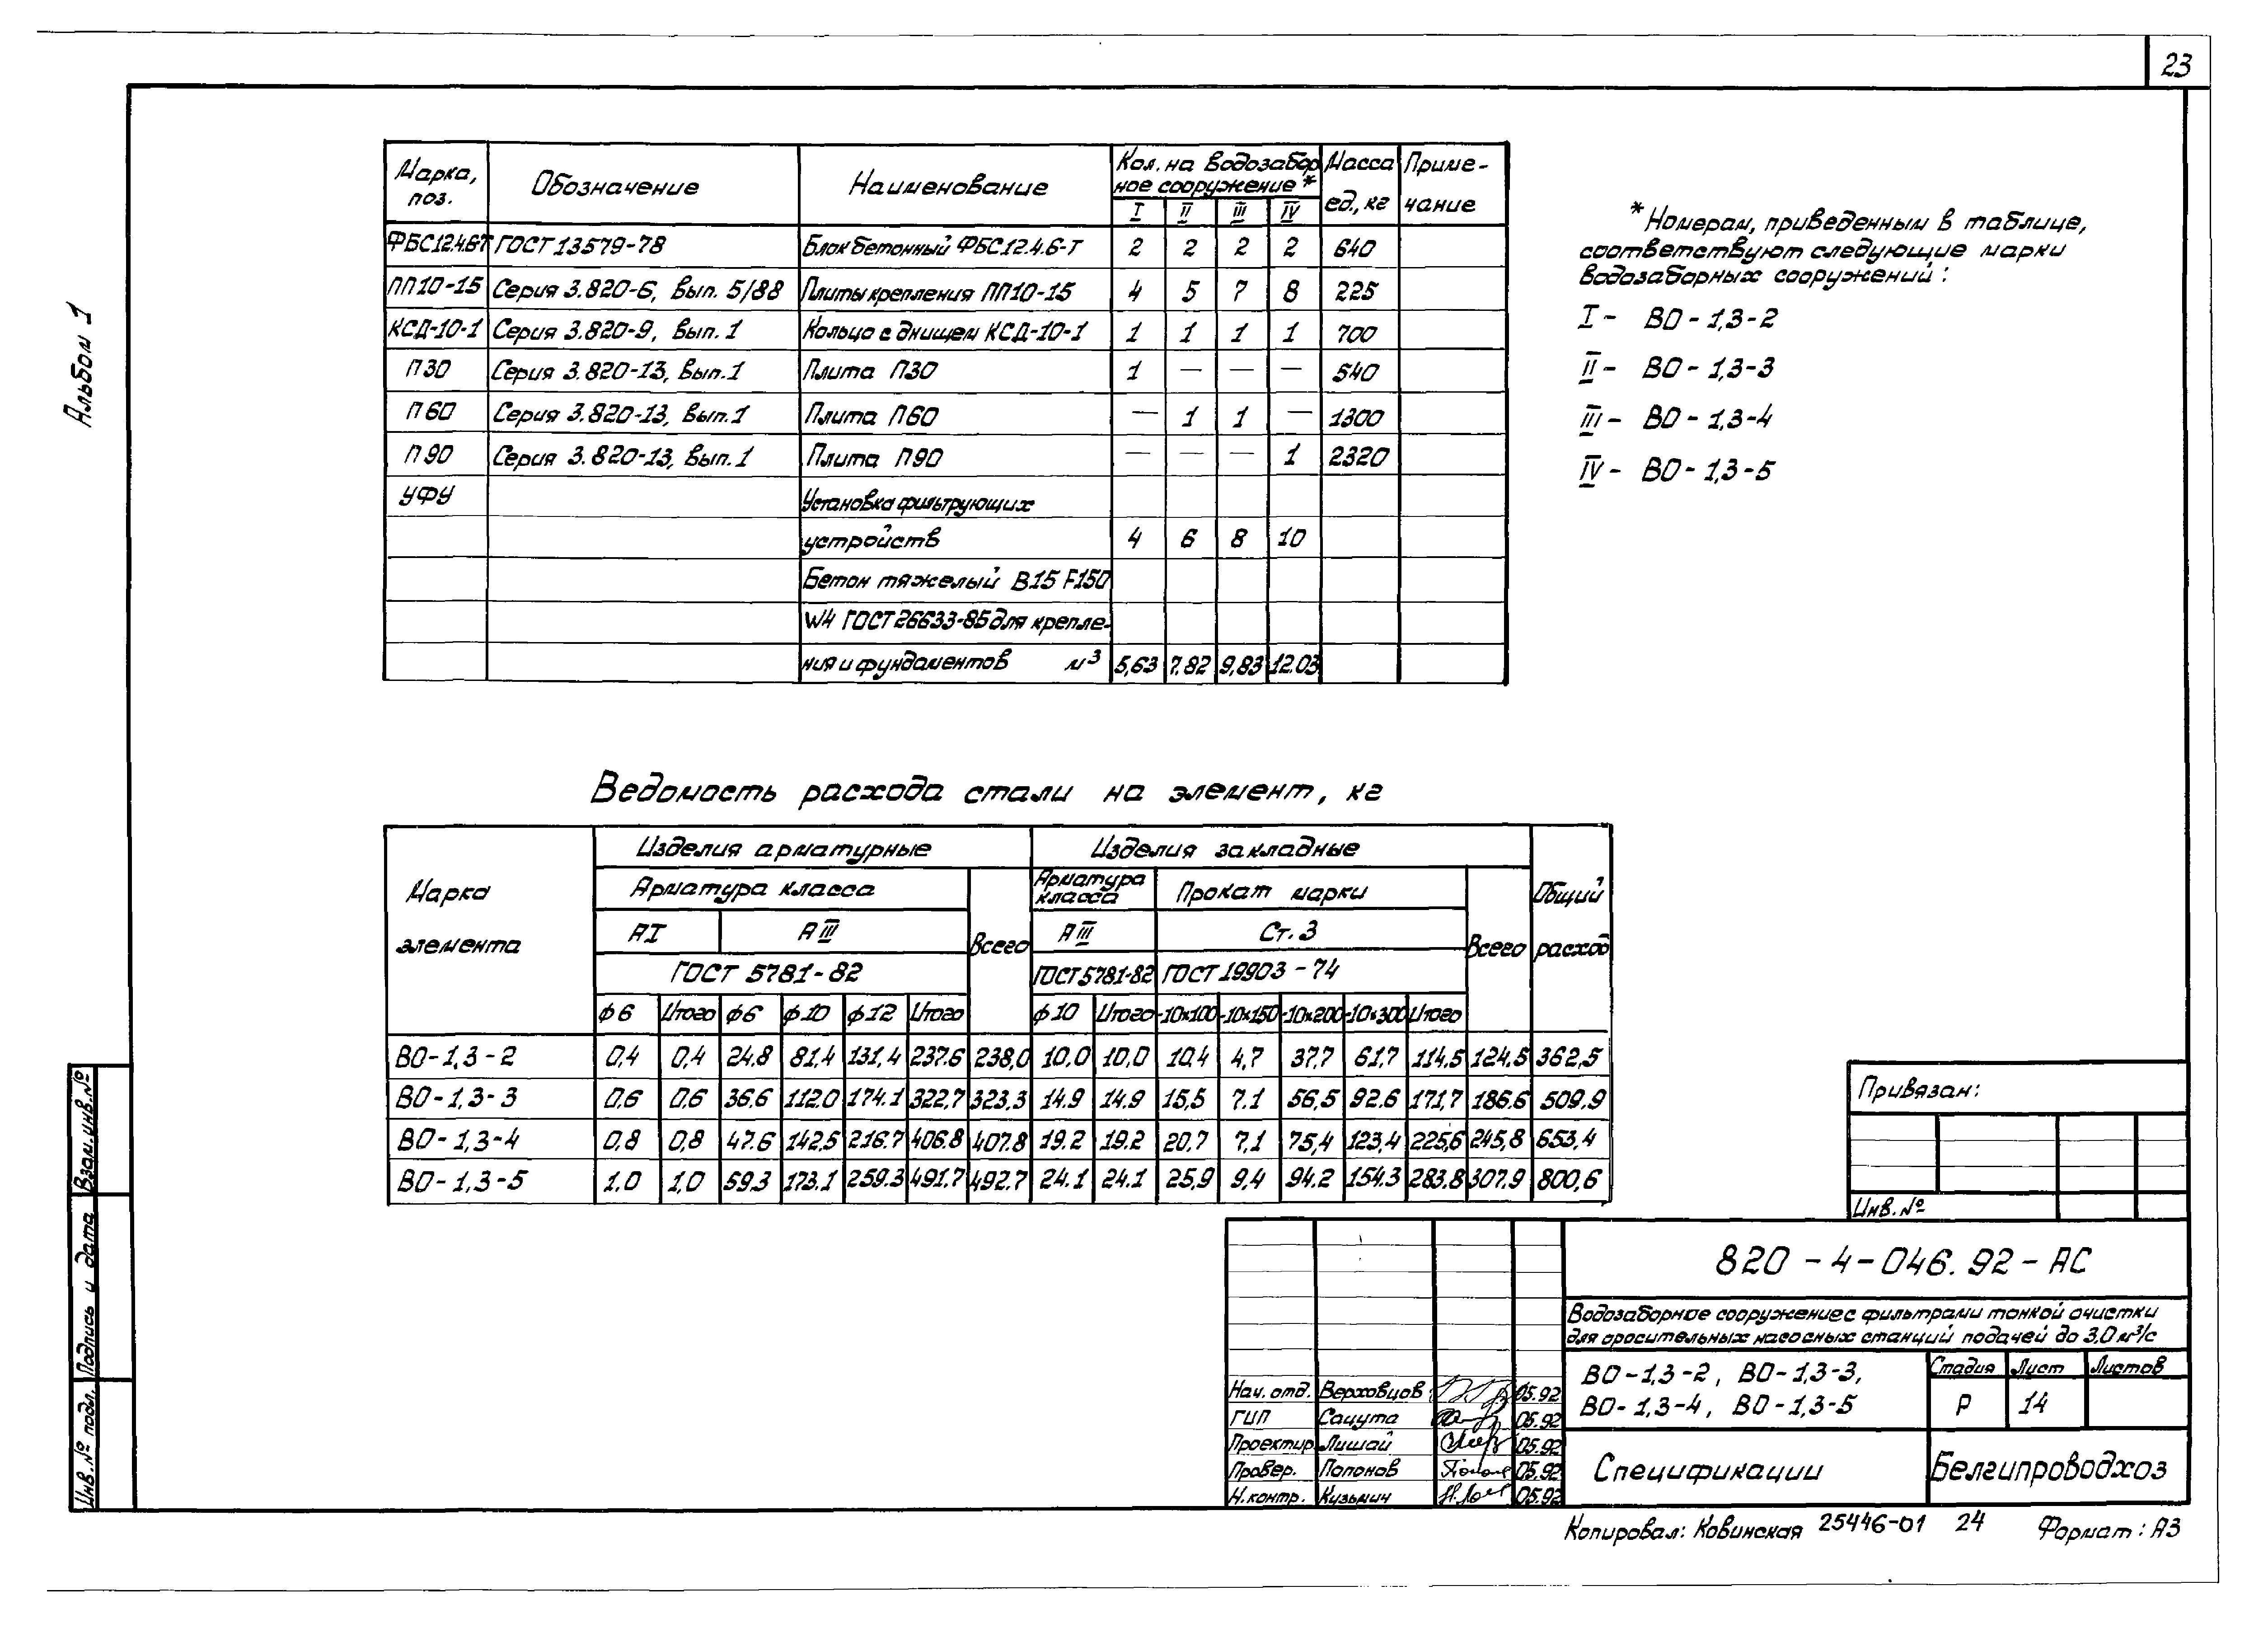 23
Альбом 1
Марка, поз. Обозначение Наименование Кол. на водозабор ное сооружение * Масса ед., кг Приме- чание
I II III IV
ФБС12.4.6Т ГОСТ 13579-78 Блок бетонный ФБС12.4.6-Т 2 2 2 2 640
ПП10-15 Серия 3.820-6, вып. 5/88 Плиты крепления ПП10-15 4 5 7 8 225
КСД-10-1 Серия 3.820-9, вып. 1 Кольцо с днищем КСД-10-1 1 1 1 1 700
П30 Серия 3.820-13, вып.1 Плита П30 1 — — — 540
П60 Серия 3.820-13, вып.1 Плита П60 — 1 1 — 1300
П90 Серия 3.820-13, вып.1 Плита П90 — — — 1 2320
УФУ Установка фильтрующих
устройств 4 6 8 10
Бетон тяжелый В15 F150
W4 ГОСТ 26633-85 для крепле-
ния и фундаментов м³ 5,63 7.82 9,83 12.03
* Номерам, приведенным в таблице,
соответствуют следующие марки
водозаборных сооружений:
I - ВО - 1,3-2
II - ВО - 1,3-3
III - ВО - 1,3-4
IV - ВО - 1,3-5
Ведомость расхода стали на элемент, кг
Марка элемента Изделия арматурные Изделия закладные Общий расход
Арматура класса Всего Арматура класса Прокат марки Всего
АI АIII АIII Ст.3
ГОСТ 5781-82 ГОСТ 5781-82 ГОСТ 19903-74
ф6 Итого ф6 ф10 ф12 Итого ф10 Итого -10х100 -10х150 -10х200 -10х300 Итого
ВО-1,3-2 0,4 0,4 24.8 81,4 131,4 237.6 238,0 10,0 10,0 10,4 4,7 37,7 61,7 114,5 124,5 362,5
ВО-1,3-3 0,6 0,6 36.6 112.0 174.1 322,7 323,3 14.9 14.9 15,5 7.1 56,5 92.6 171,7 186.6 509.9
ВО-1,3-4 0,8 0,8 47.6 142,5 216.7 406.8 407.8 19.2 19.2 20,7 7,1 75,4 123,4 225,6 245,8 653,4
ВО-1,3-5 1,0 1,0 59.3 173.1 259.3 491.7 492.7 24.1 24.1 25,9 9,4 94.2 154.3 283.8 307.9 800,6
Привязан:
Инв. №
Взам. инв. №
Подпись и дата
Инв. № подл.
820-4-046.92-АС
Водозаборное сооружение с фильтрами тонкой очистки
для оросительных насосных станций подачей до 3,0 м³/с
ВО-1,3-2, ВО-1,3-3,
ВО-1,3-4, ВО-1,3-5
Стадия Лист Листов
Р 14
Нач. отд. Верховцов 05.92
ГИП Сацута 05.92
Проектир. Лишай 05.92
Провер. Попонов 05.92
Н.контр. Кузьмич 05.92
Спецификации
Белгипроводхоз
Копировал: Ковинская 25446-01 24 Формат: А3